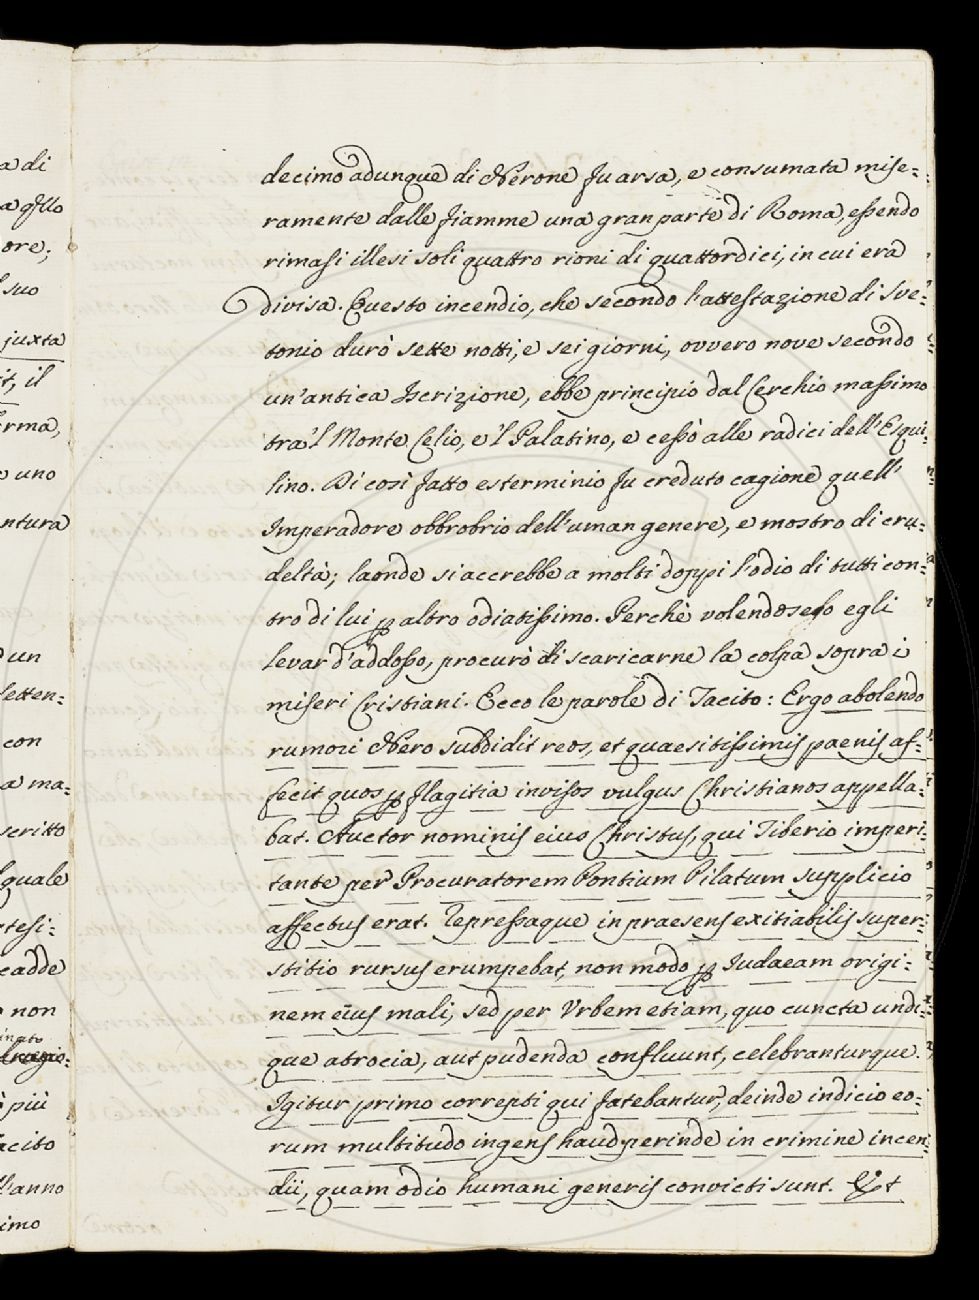 a di
a qllo
ore;
suo
juxta
it, il
erma,
uno
ntura
un
setten=
con
a ma=
scritto
quale
rtesi=
cadde
non
più
acito
l'anno
imo
decimo adunque di Nerone fu arsa, e consumata mise=
ramente dalle fiamme una gran parte di Roma, essendo
rimasi illesi soli quattro rioni di quattordici, in cui era
divisa. Questo incendio, che secondo l'attestazione di Sve=
tonio durò sette notti, e sei giorni, ovvero nove secondo
un'antica Iscrizione, ebbe principio dal Cerchio massimo
tra'l Monte Celio, e'l Palatino, e cessò alle radici dell'Esqui=
lino. Di così fatto esterminio fu creduto cagione quell'
Imperadore obbrobrio dell'uman genere, e mostro di cru=
deltà; laonde si accrebbe a molti doppi l'odio di tutti con=
tro di lui p altro odiatissimo. Perchè volendoselo egli
levar d'addosso, procurò di scaricarne la colpa sopra i
miseri Cristiani. Ecco le parole di Tacito: Ergo abolendo
rumori Nero subdidit reos, et quaesitissimis paenis af=
fecit quos p flagitia invisos vulgus Christianos appella=
bat. Auctor nominis eius Christus, qui Tiberio imperi=
tante per Procuratorem Pontium Pilatum supplicio
affectus erat. Repressaque in praesens exitiabilis super=
stitio rursus erumpebat, non modo p Iudaeam origi=
nem eius mali, sed per Urbem etiam, quo cuncta undi=
que atrocia, aut pudenda confluunt, celebranturque.
Igitur primo correpti qui fatebantur, deinde indicio eo=
rum multitudo ingens haud perinde in crimine incen=
dii, quam odio humani generis convicti sunt. Et